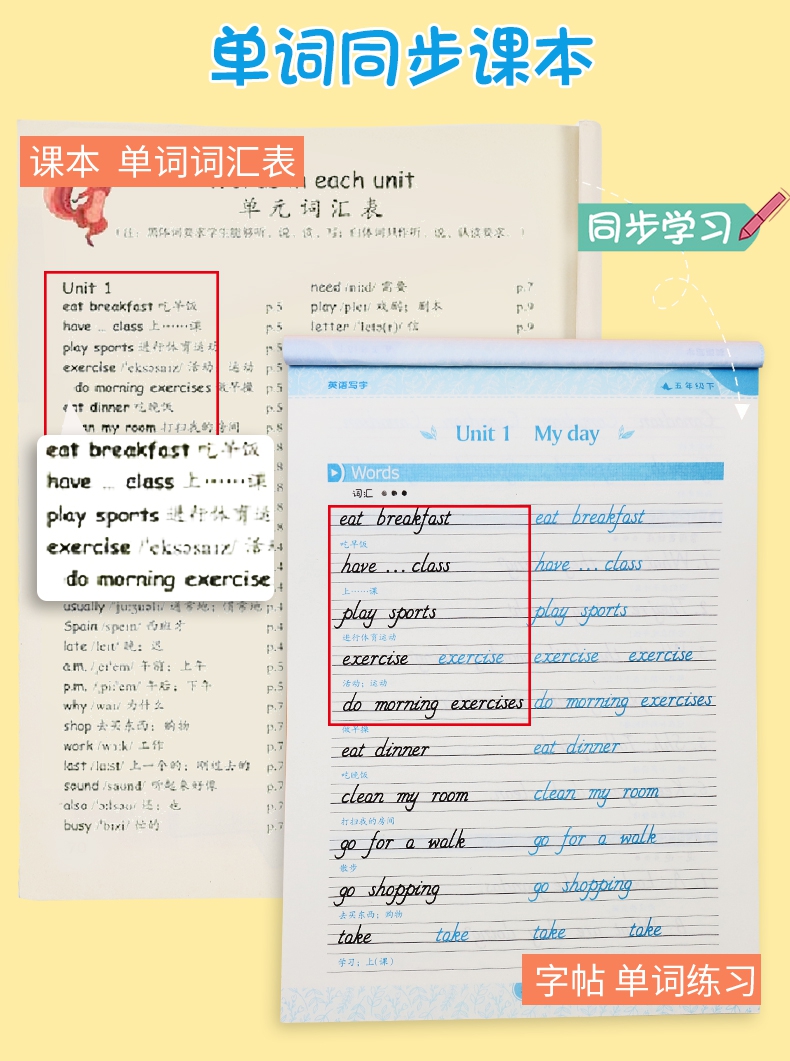 单词同步课本
课本 单词词汇表
in each unit
单元词汇表
同步学习
Unit 1
eat breakfast 吃早饭 p.5
have ... class 上……课 p.5
play sports 进行体育运动 p.5
exercise 活动；运动 p.5
do morning exercises 做早操 p.5
eat dinner 吃晚饭 p.5
my room 打扫我的房间
eat breakfast 吃早饭
have ... class 上……课
play sports 进行体育运
exercise /'eksəsaɪz/ 活动
do morning exercise
usually 通常地；惯常地 p.4
Spain /speɪn/ 西班牙 p.4
late /leɪt/ 晚；迟 p.4
a.m. /ˌeɪ'em/ 午前；上午 p.5
p.m. /ˌpiː'em/ 午后；下午 p.5
why /waɪ/ 为什么 p.7
shop 去买东西；购物 p.7
work /wɜːk/ 工作 p.7
last /lɑːst/ 上一个的；刚过去的 p.7
sound /saʊnd/ 听起来好像 p.7
also /'ɔːlsəʊ/ 还；也 p.7
busy /'bɪzi/ 忙的 p.7
need /niːd/ 需要 p.7
play /pleɪ/ 戏剧；剧本 p.9
letter /'letə(r)/ 信 p.9
英语写字 五年级下
Unit 1 My day
Words
词汇
eat breakfast eat breakfast
吃早饭
have ... class have ... class
上……课
play sports play sports
进行体育运动
exercise exercise exercise exercise
活动；运动
do morning exercises do morning exercises
做早操
eat dinner eat dinner
吃晚饭
clean my room clean my room
打扫我的房间
go for a walk go for a walk
散步
go shopping go shopping
去买东西；购物
take take take take
学习；上(课)
字帖 单词练习